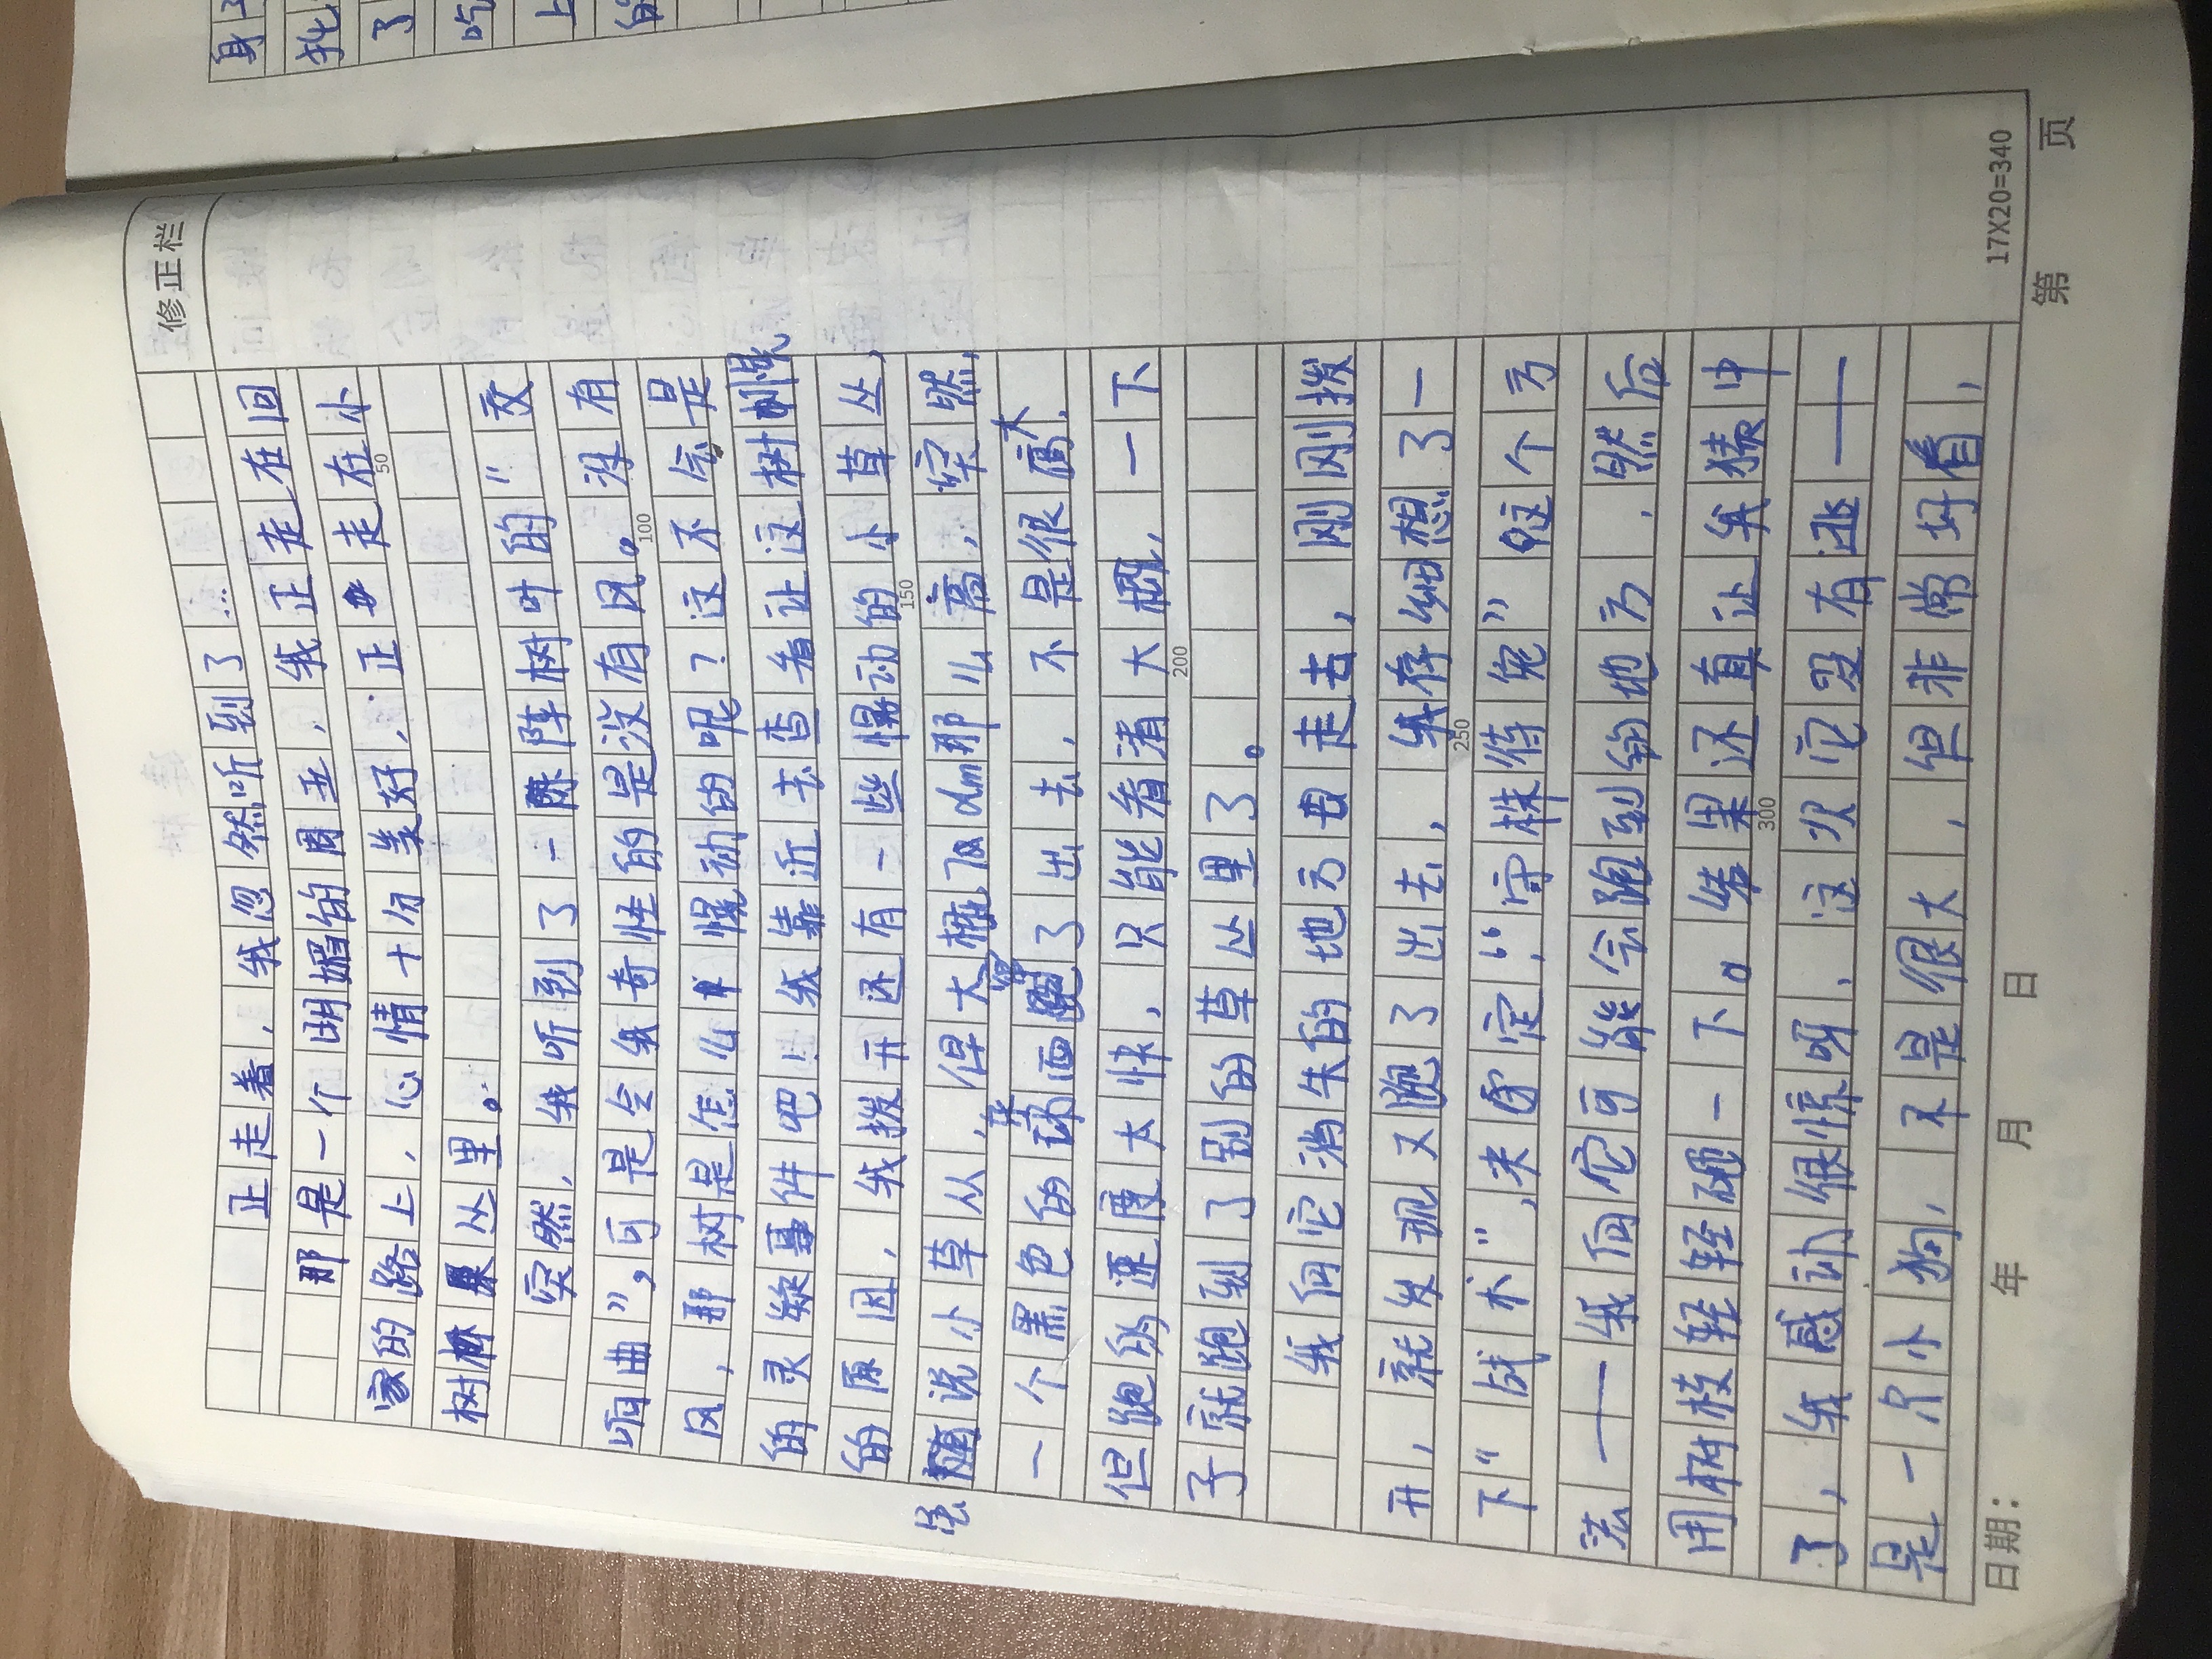 身
扎
了
吃
上
修正栏
正走着，我忽然听到了…
那是一个明媚的周五，我正走在回
家的路上，心情十分美好，正走在小
树丛里。
突然，我听到了一阵树叶的“交
响曲”，可是令我奇怪的是没有风。没有
风，那树是怎么晃动的呢？这不会是
的灵疑事件吧！我靠近去查看让这树
的原因，我拨开还有一些慌动的小草丛，
说小草从，但大概7a dm那么高，突然，
一个黑色的球面了出去，不是很高大，
但跑的速度太快，只能看清大概，一下
子就跑到了别的草丛里了。
我向它消失的地方走去，刚刚拨
开，就发现又跑了出去，我仔细想了一
下“战术”，来确定，“守株待兔”这个方
法——我向它可能会跑到的地方，然后
用树枝轻轻碰一下。结果还真让我猜中
了，我感讣很惊呀，这次它没有逃——
是一个小狗，不是很大，但非常好看，
50
100
150
200
250
300
17X20=340
日期： 年 月 日 第 页